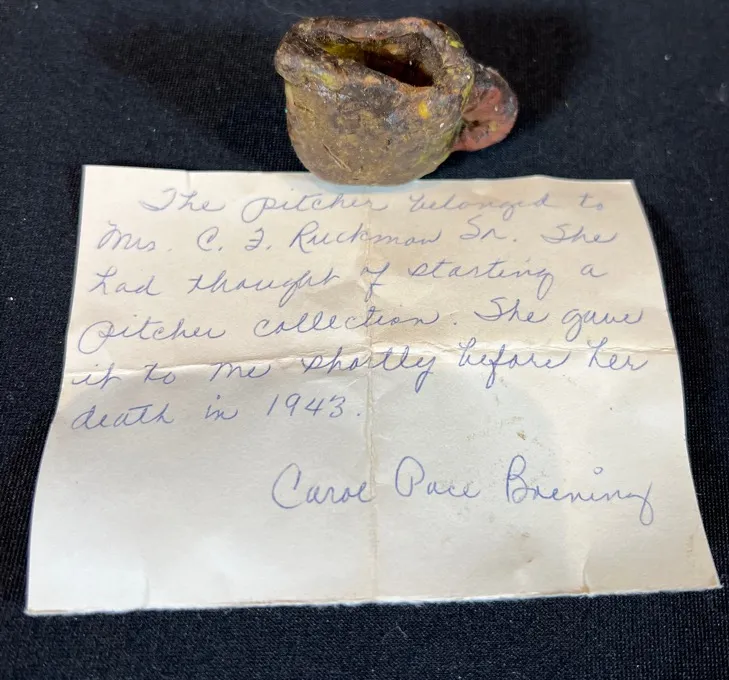 The pitcher belonged to
Mrs. C. F. Ruckman Sr. She
had thought of starting a
pitcher collection. She gave
it to me shortly before her
death in 1943.
Carol Pace Boening